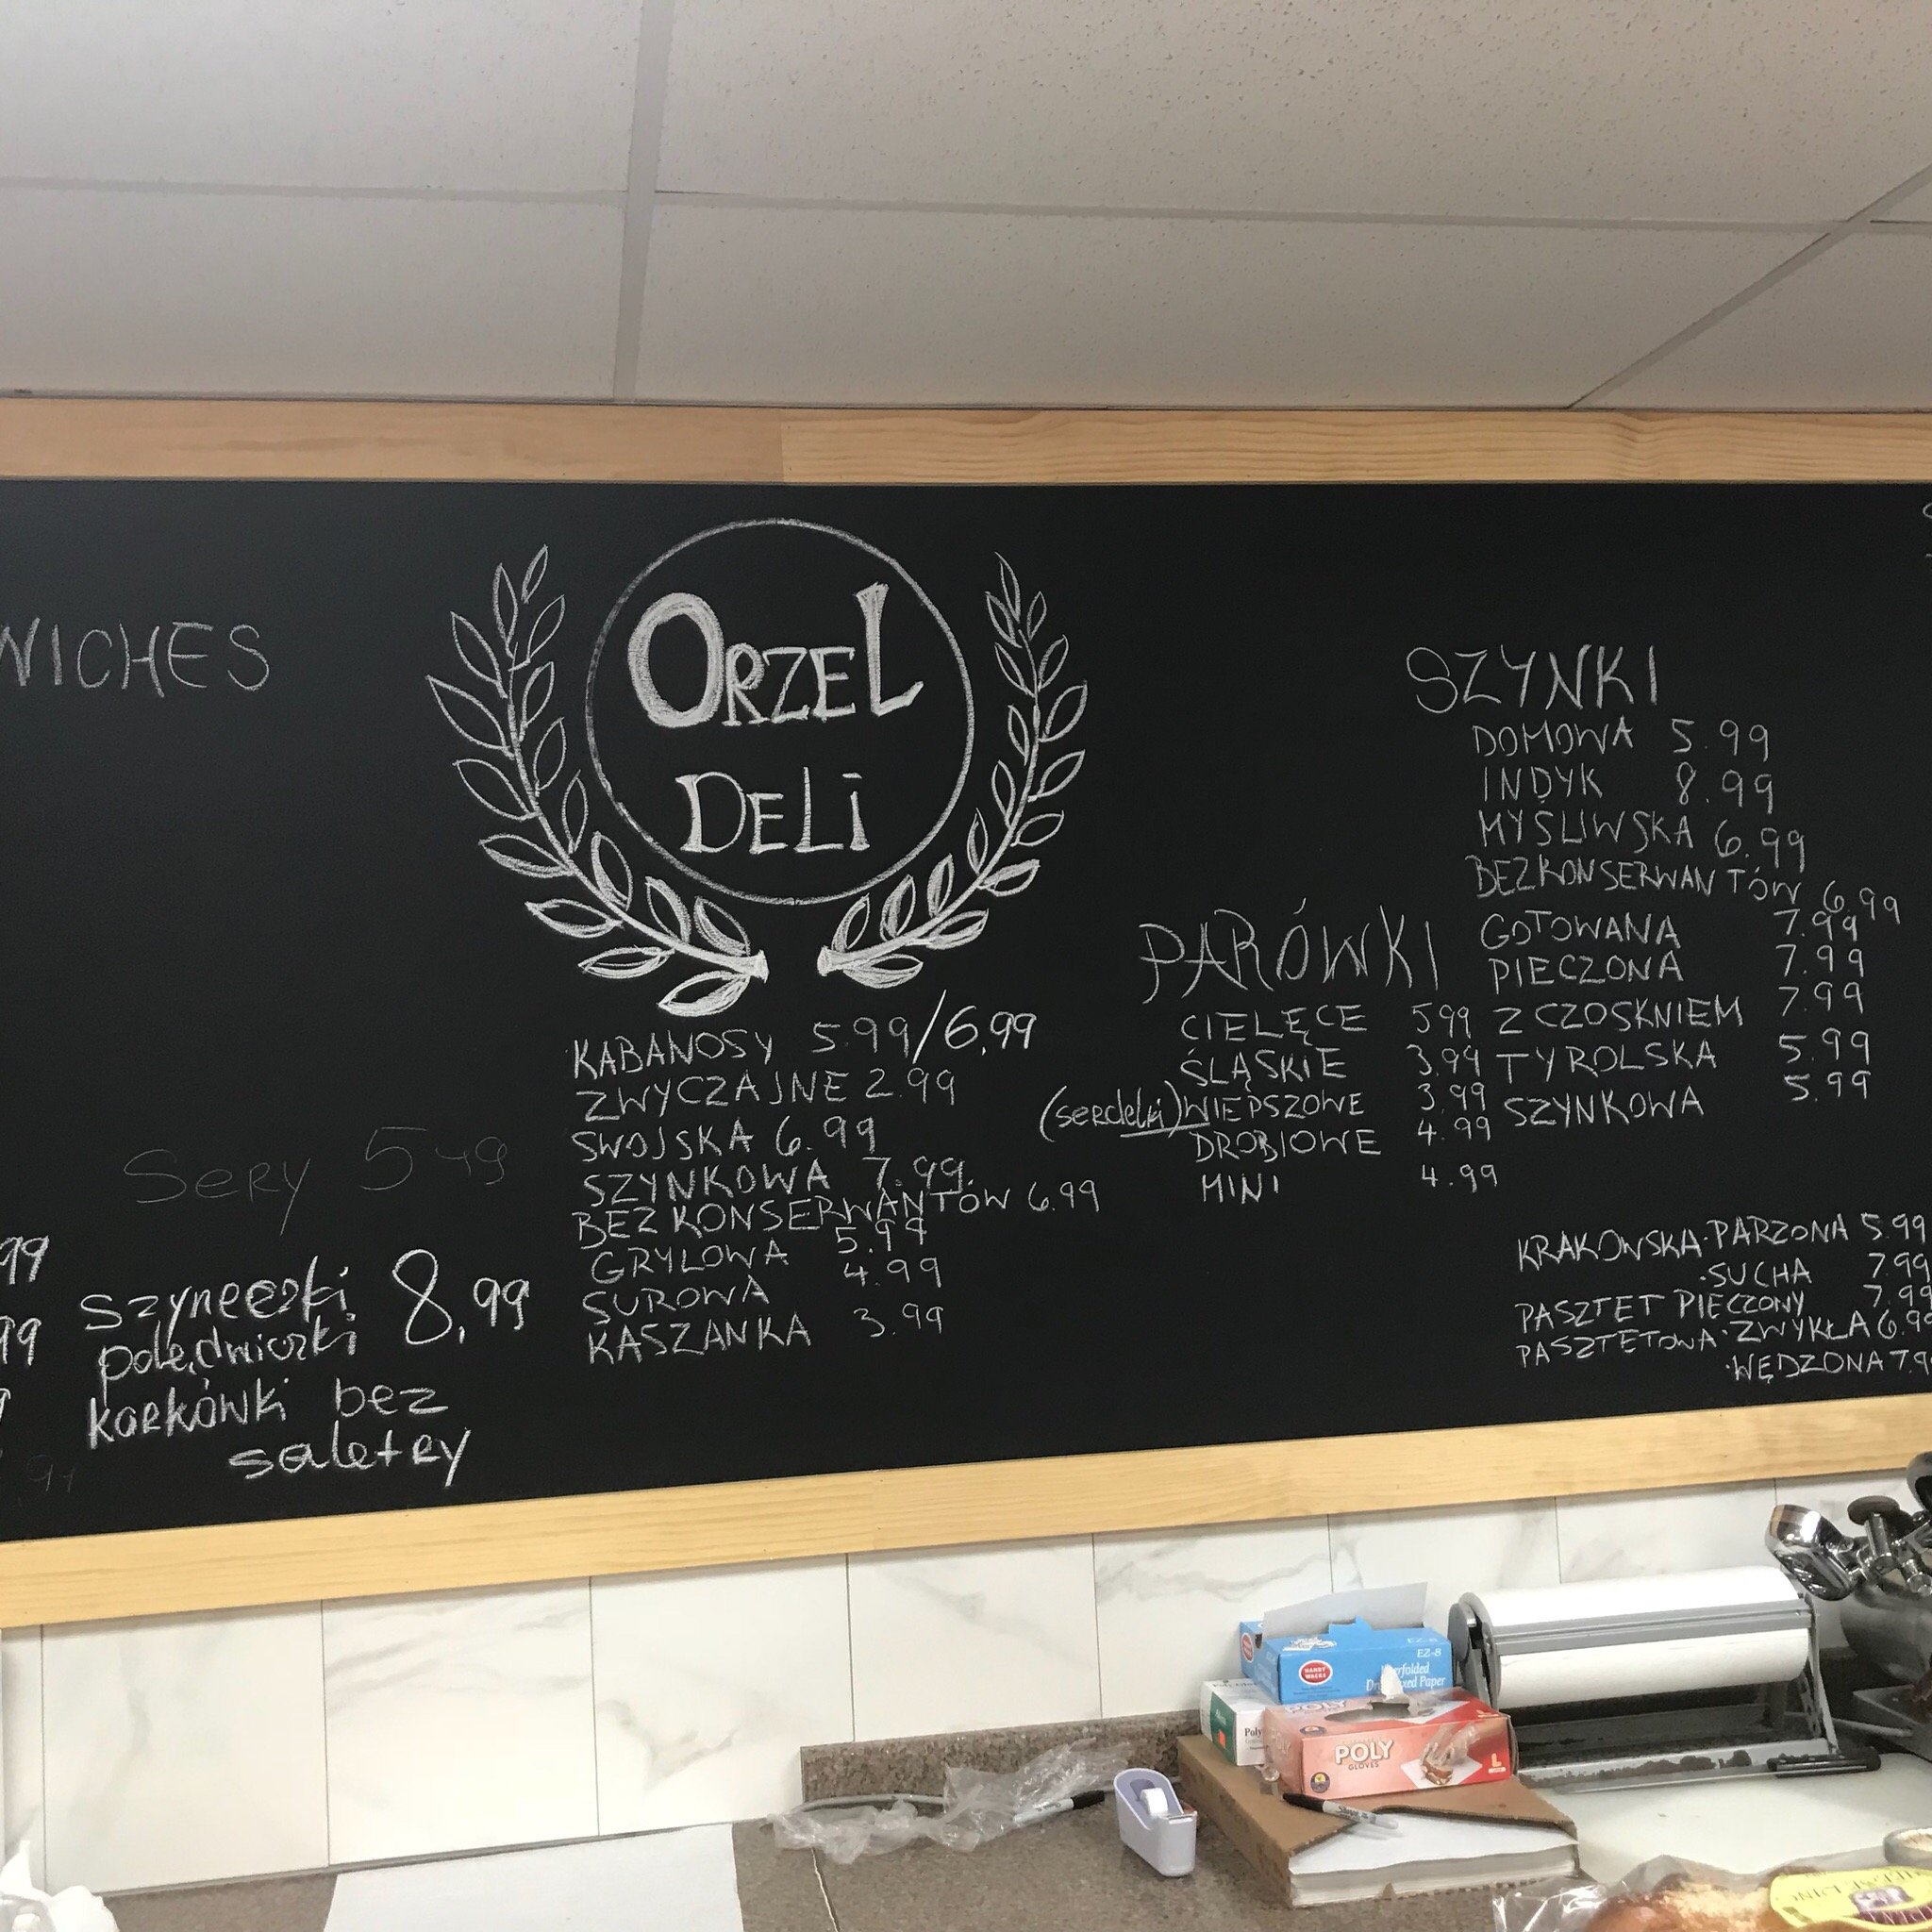 WICHES
ORZEL
DELI
Sery 5 49
99
99
szyneczki 8,99
polędwiczki
karkówki bez
saletry
KABANOSY 5.99/6,99
ZWYCZAJNE 2.99
SWOJSKA 6.99
SZYNKOWA 7.99.
BEZ KONSERWANTÓW 6.99
GRYLOWA 5.99
SUROWA 4.99
KASZANKA 3.99
PARÓWKI
CIELĘCE 599
ŚLĄSKIE 3.99
(serdelki) WIEPSZOWE 3.99
DROBIOWE 4.99
MINI 4.99
SZYNKI
DOMOWA 5.99
INDYK 8.99
MYŚLIWSKA 6.99
BEZKONSERWANTÓW 6.99
GOTOWANA 7.99
PIECZONA 7.99
Z CZOSKNIEM 7.99
TYROLSKA 5.99
SZYNKOWA 5.99
KRAKOWSKA·PARZONA 5.99
·SUCHA 7.99
PASZTET PIECZONY 7.99
PASZTETOWA·ZWYKŁA 6.99
·WĘDZONA 7.9
HANDY WACKS
EZ-8
Interfolded
Dry Waxed Paper
Poly
POLY
GLOVES
L
Sharpie